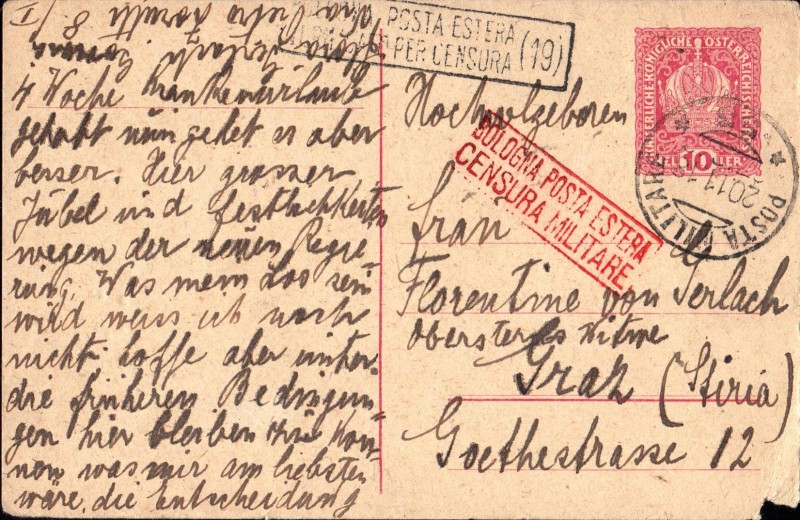 POSTA ESTERA
PER CENSURA (19)
4 Woche Krankenurlaub
gehabt nun gehet es aber
besser. Hier grosser
Jubel und Festlichkeiten
wegen der neuen Regie
rung. Was mein Los sein
wird weiss ich noch
nicht hoffe aber unter
die früheren Bedingun-
gen hier bleiben zu kön-
nen was mir am liebsten
wäre, die Entscheidung
KAISERLICHE KÖNIGLICHE ÖSTERREICHISCHE
10 HELLER
POSTA MILITARE
20.11.18
BOLOGNA POSTA ESTERA
CENSURA MILITARE
Hochwolgeboren
Frau
Florentine von Serlach
Oberstens Witwe
Graz (Stiria)
Goethestrasse 12